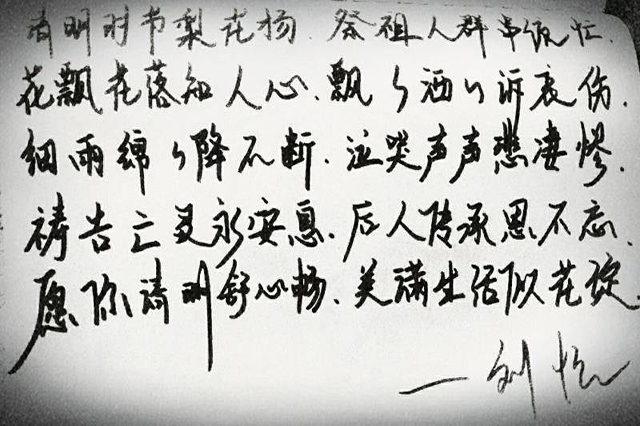 清明时节梨花扬.祭祖人群串流忙.
花飘花落知人心.飘々洒々诉哀伤.
细雨绵々降不断.泣哭声声悲凄惨.
祷告亡灵永安息.后人传承恩不忘.
愿你清明舒心畅.美满生活似花绽
一刘